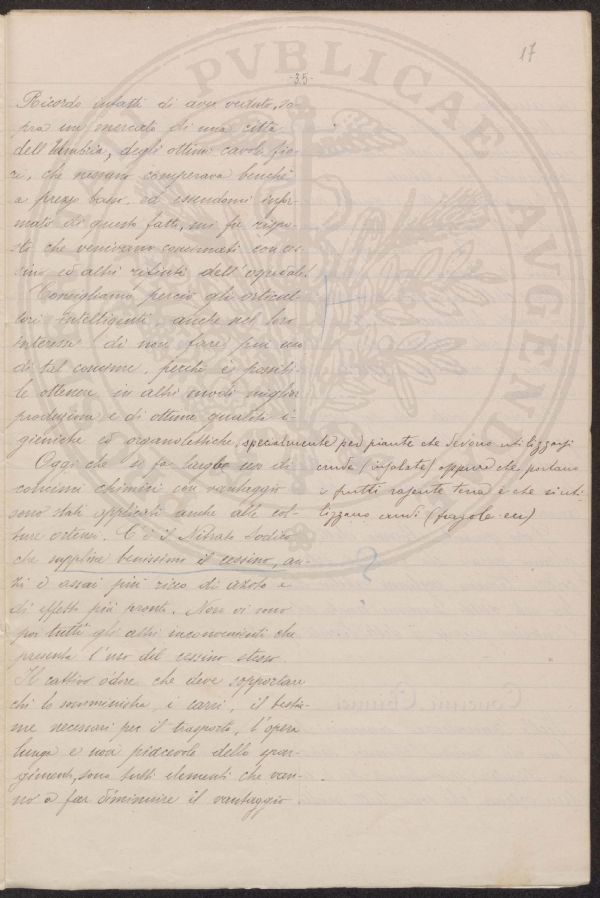 17
-35-
Ricordo infatti di aver veduto, so-
pra un mercato di una città
dell'Umbria, degli ottimi cavoli fio-
ri, che nessuno comperava benchè
a prezzo basso, ed essendomi infor-
mato di questo fatto, mi fu rispo-
sto che venivano concimati con ces-
sino ed altri rifiuti dell'ospedale!
Consigliamo perciò gli orticul-
tori intelligenti, anche nel loro
interesse di non fare più uso
di tal concime, perchè è possibi-
le ottenere in altri modi miglior
produzione e di ottime qualità i-
gieniche ed organolettiche, specialmente per piante che devono utilizzarsi
crude (insalate) oppure che portano
i frutti rasente terra e che si uti-
lizzano crudi (fragole ecc)
Oggi che si fa largo uso di
concimi chimici con vantaggio
sono stati applicati anche alle col-
ture ortensi. C'è il Nitrato Sodico
che supplisce benissimo il cessino, an-
zi è assai più ricco di azoto e
di effetto più pronto. Non vi sono
poi tutti gli altri inconvenienti che
presenta l'uso del cessino stesso.
Il cattivo odore che deve sopportare
chi lo somministra, i carri, il bestia-
me necessari per il trasporto, l'opera
lunga e non piacevole dello spar-
gimento, sono tutti elementi che van-
no a far diminuire il vantaggio